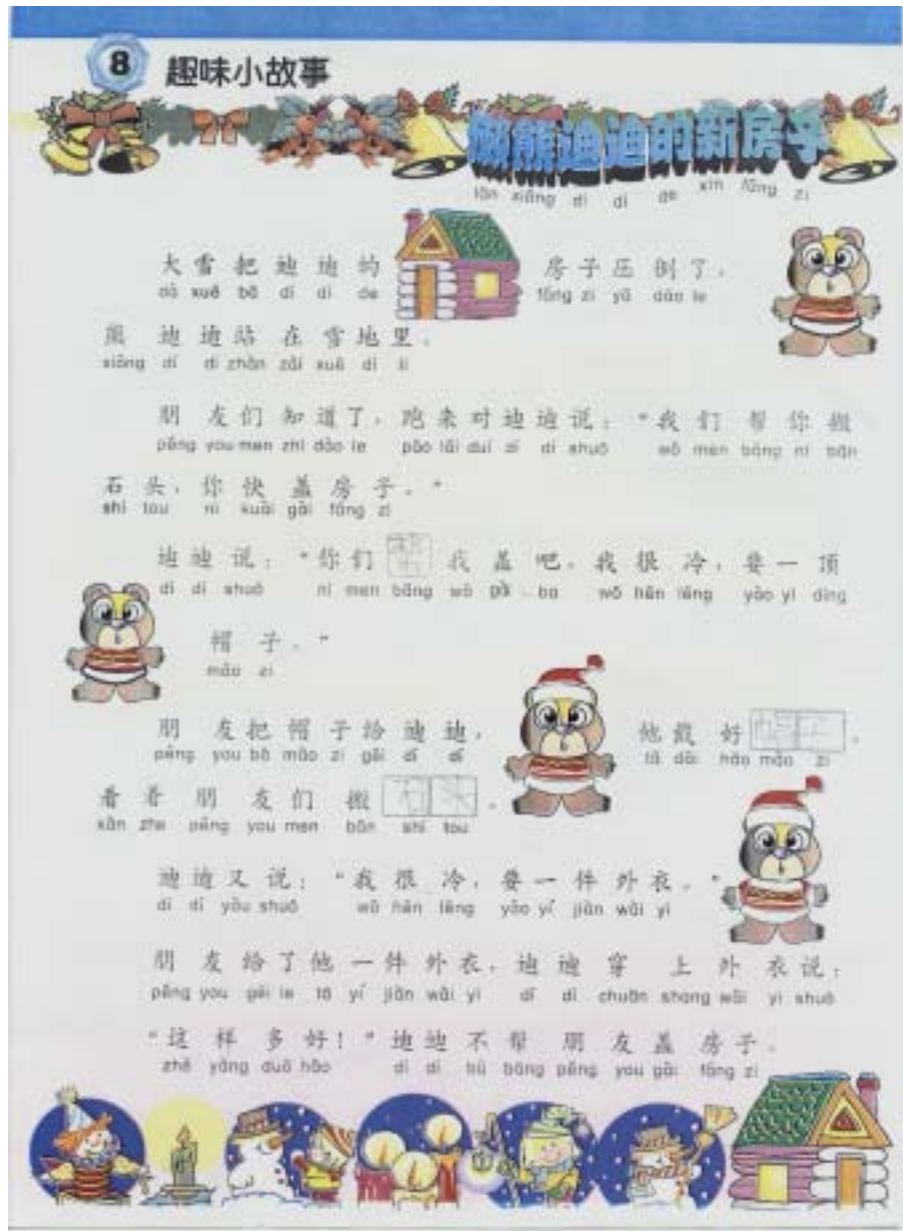 8 趣味小故事
懒熊迪迪的新房子
lǎn xióng dí dí de xīn fáng zi
大雪把迪迪的 房子压倒了，
dà xuě bǎ dí dí de fáng zi yā dǎo le
熊迪迪站在雪地里。
xióng dí dí zhàn zài xuě dì li
朋友们知道了，跑来对迪迪说：“我们帮你搬
péng you men zhī dào le pǎo lái duì dí dí shuō wǒ men bāng nǐ bān
石头，你快盖房子。”
shí tou nǐ kuài gài fáng zi
迪迪说：“你们帮我盖吧。我很冷，要一顶
dí dí shuō nǐ men bāng wǒ gài ba wǒ hěn lěng yào yì dǐng
帽子。”
mào zi
朋友把帽子给迪迪， 他戴好帽子，
péng you bǎ mào zi gěi dí dí tā dài hǎo mào zi
看着朋友们搬石头。
kàn zhe péng you men bān shí tou
迪迪又说：“我很冷，要一件外衣。”
dí dí yòu shuō wǒ hěn lěng yào yí jiàn wài yī
朋友给了他一件外衣，迪迪穿上外衣说：
péng you gěi le tā yí jiàn wài yī dí dí chuān shang wài yī shuō
“这样多好！”迪迪不帮朋友盖房子。
zhè yàng duō hǎo dí dí bù bāng péng you gài fáng zi